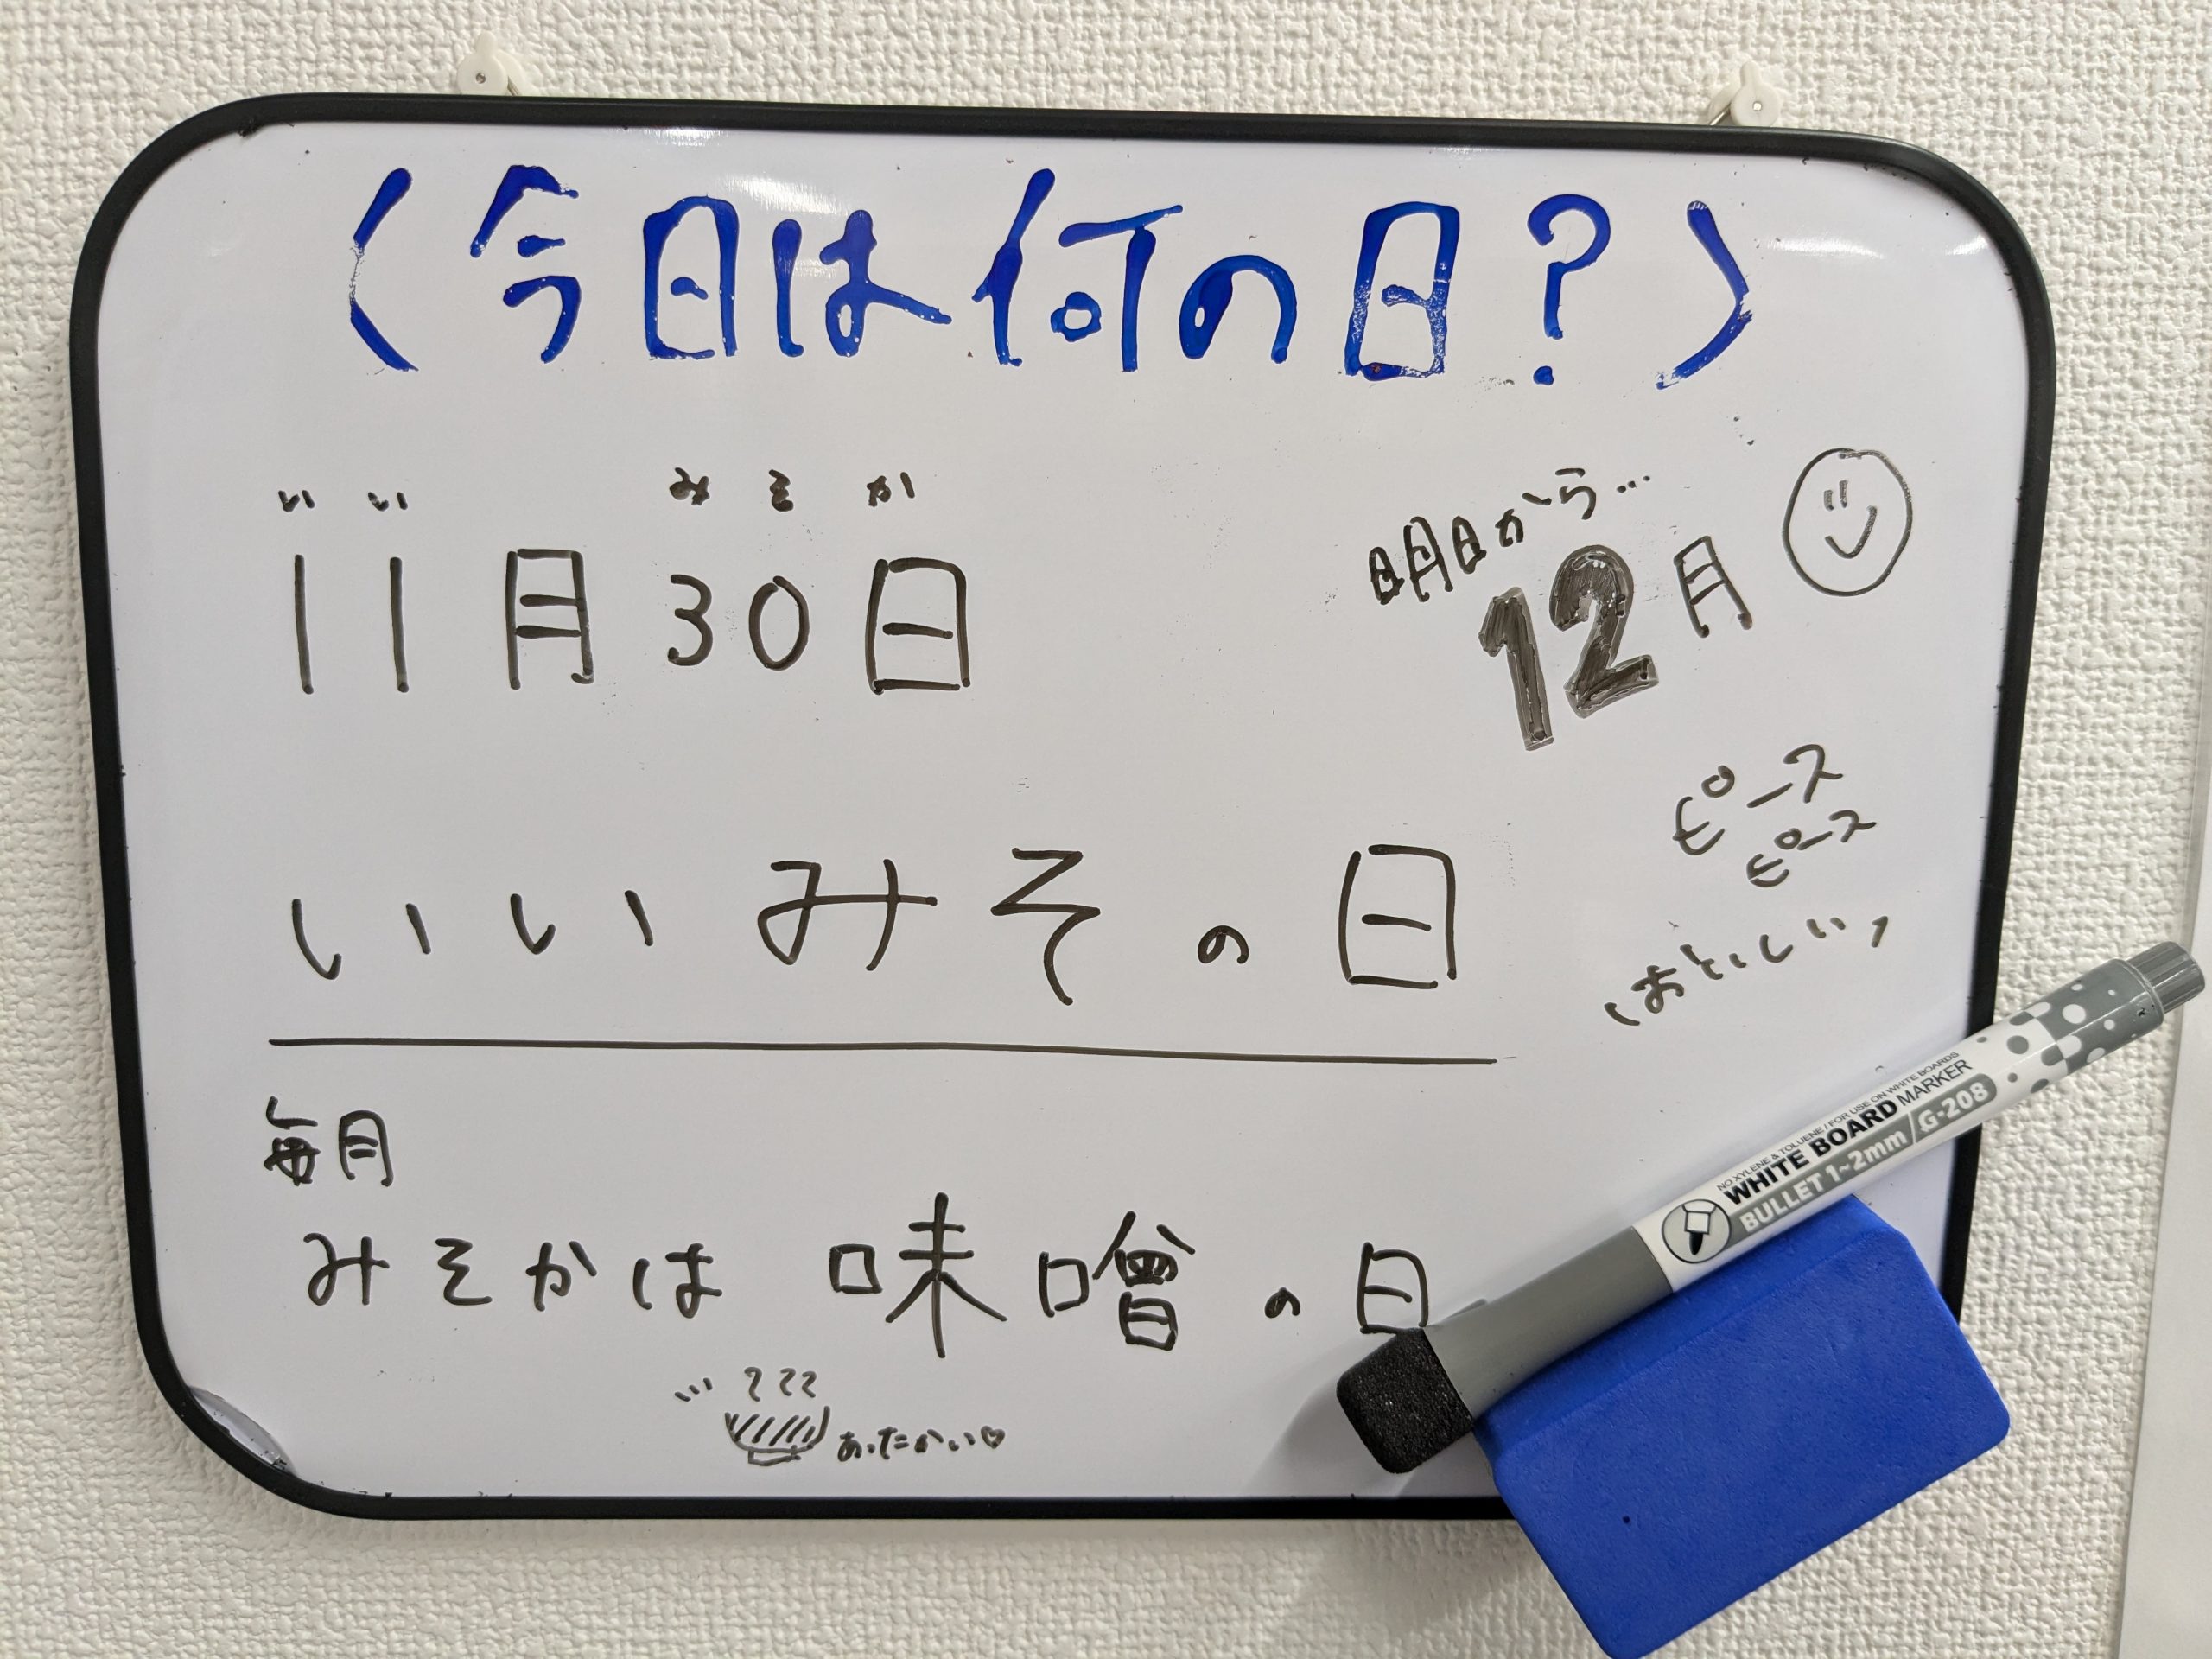 （今日は何の日？）
いい みそか
11月30日
明日から…
12月
いいみその日
ピース
ピース
毎月
みそかは 味噌の日
あったかい♡
NO XYLENE & TOLUENE / FOR USE ON WHITE BOARDS
WHITE BOARD MARKER
BULLET 1~2mm / G-208